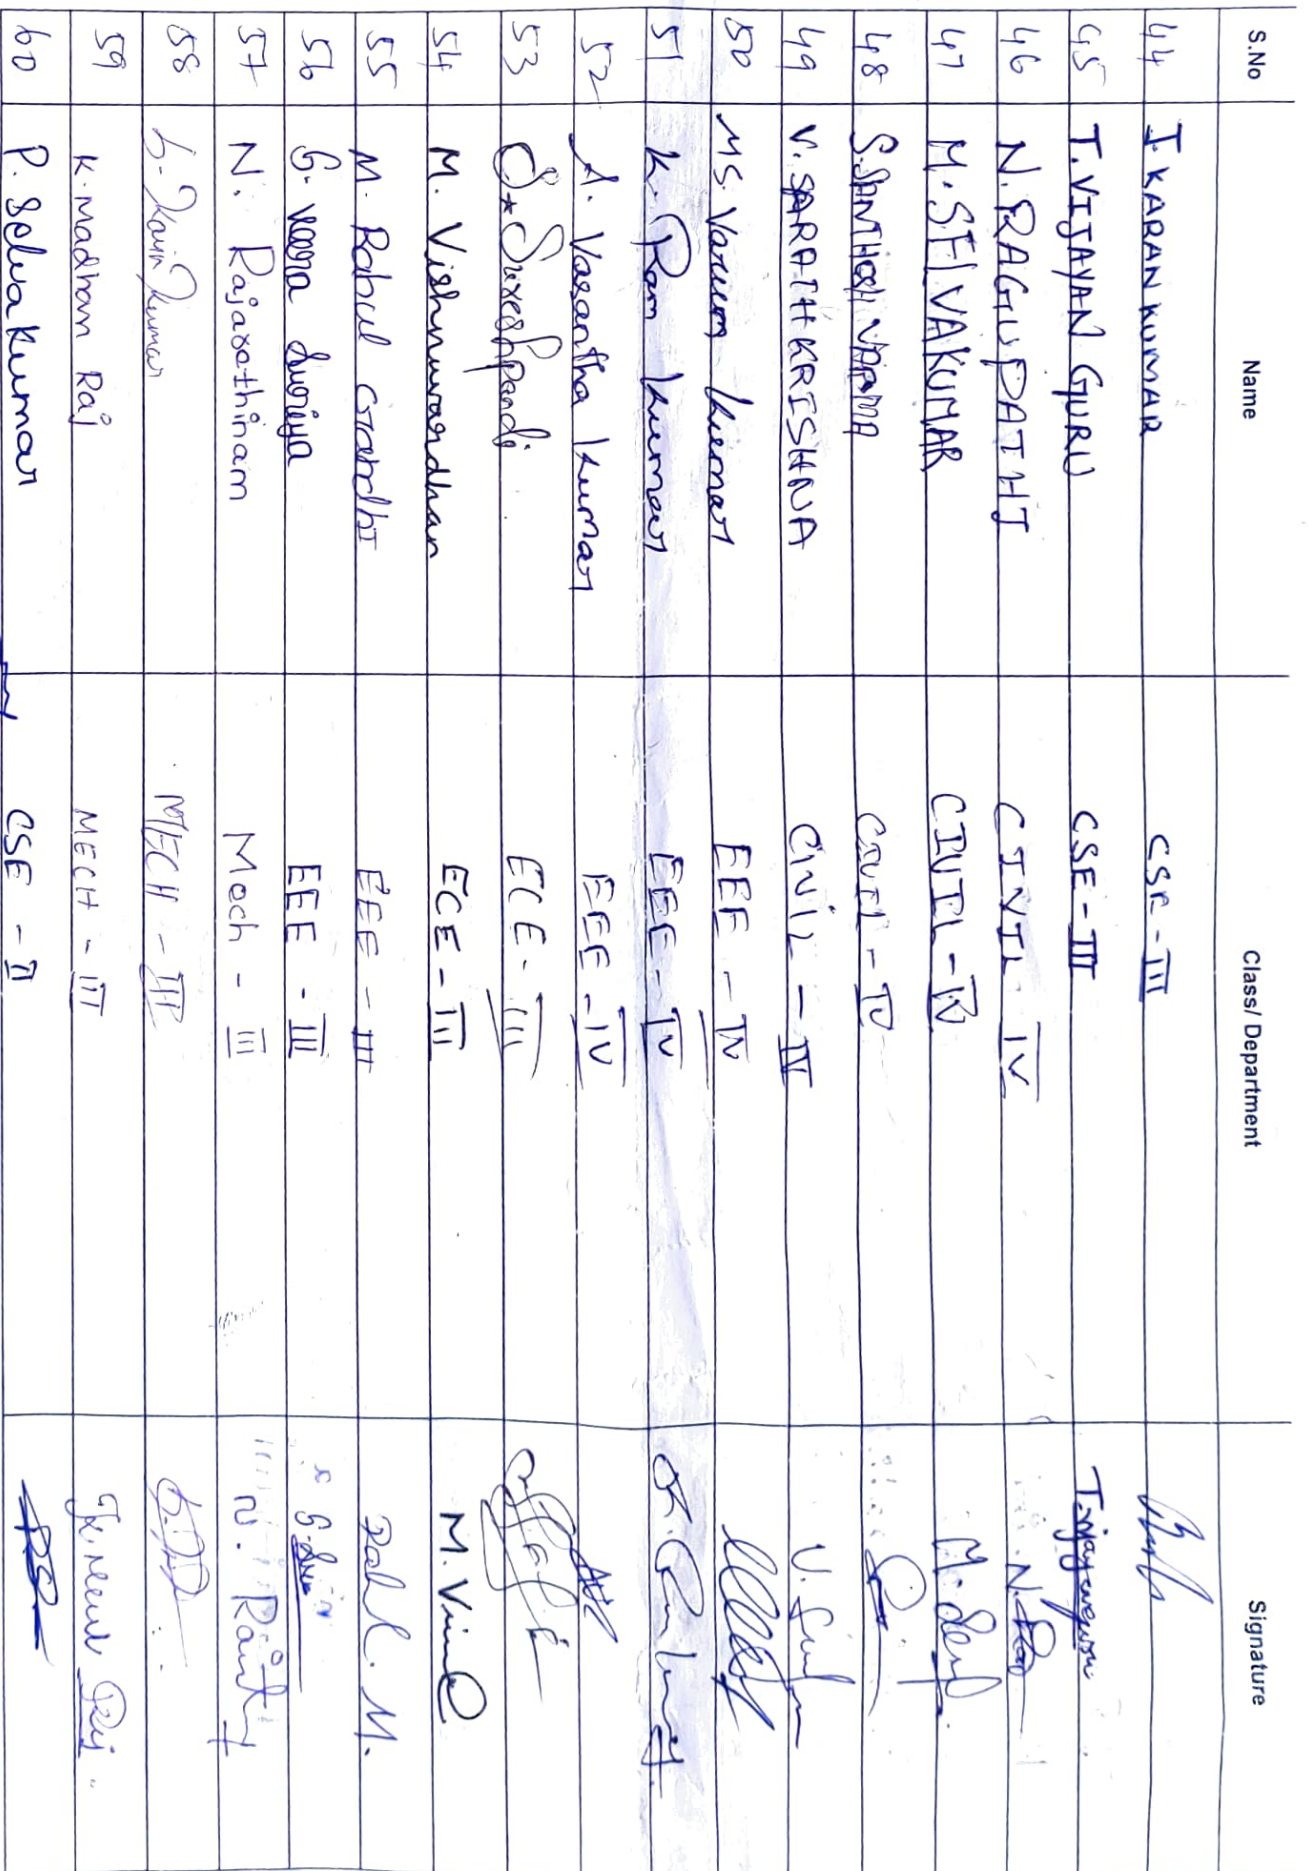 S.No Name Class/ Department Signature
44 I. KARAN KUMAR CSE - III
45 T. VIJAYAN GURU CSE - III T. vijayanguru
46 N. RAGUPATHI CIVIL - IV
47 M. SELVAKUMAR CIVIL - IV
48 S. SANTHOSH VARMA CIVIL - IV
49 V. SARATH KRISHNA CIVIL - IV
50 MS. Varun kumar EEE - IV
51 K. Ram kumar EEE - IV
52 A. Vasantha kumar EEE - IV
53 S. Sureshpandi ECE - III
54 M. Vishnuvardhan ECE - III
55 M. Rahul Gandhi EEE - III Rahul. M.
56 G. veera Suriya EEE - III
57 N. Rajarathinam Mech - III
58 MECH - III
59 K. Madhan Raj MECH - III
60 P. Selvakumar CSE - II